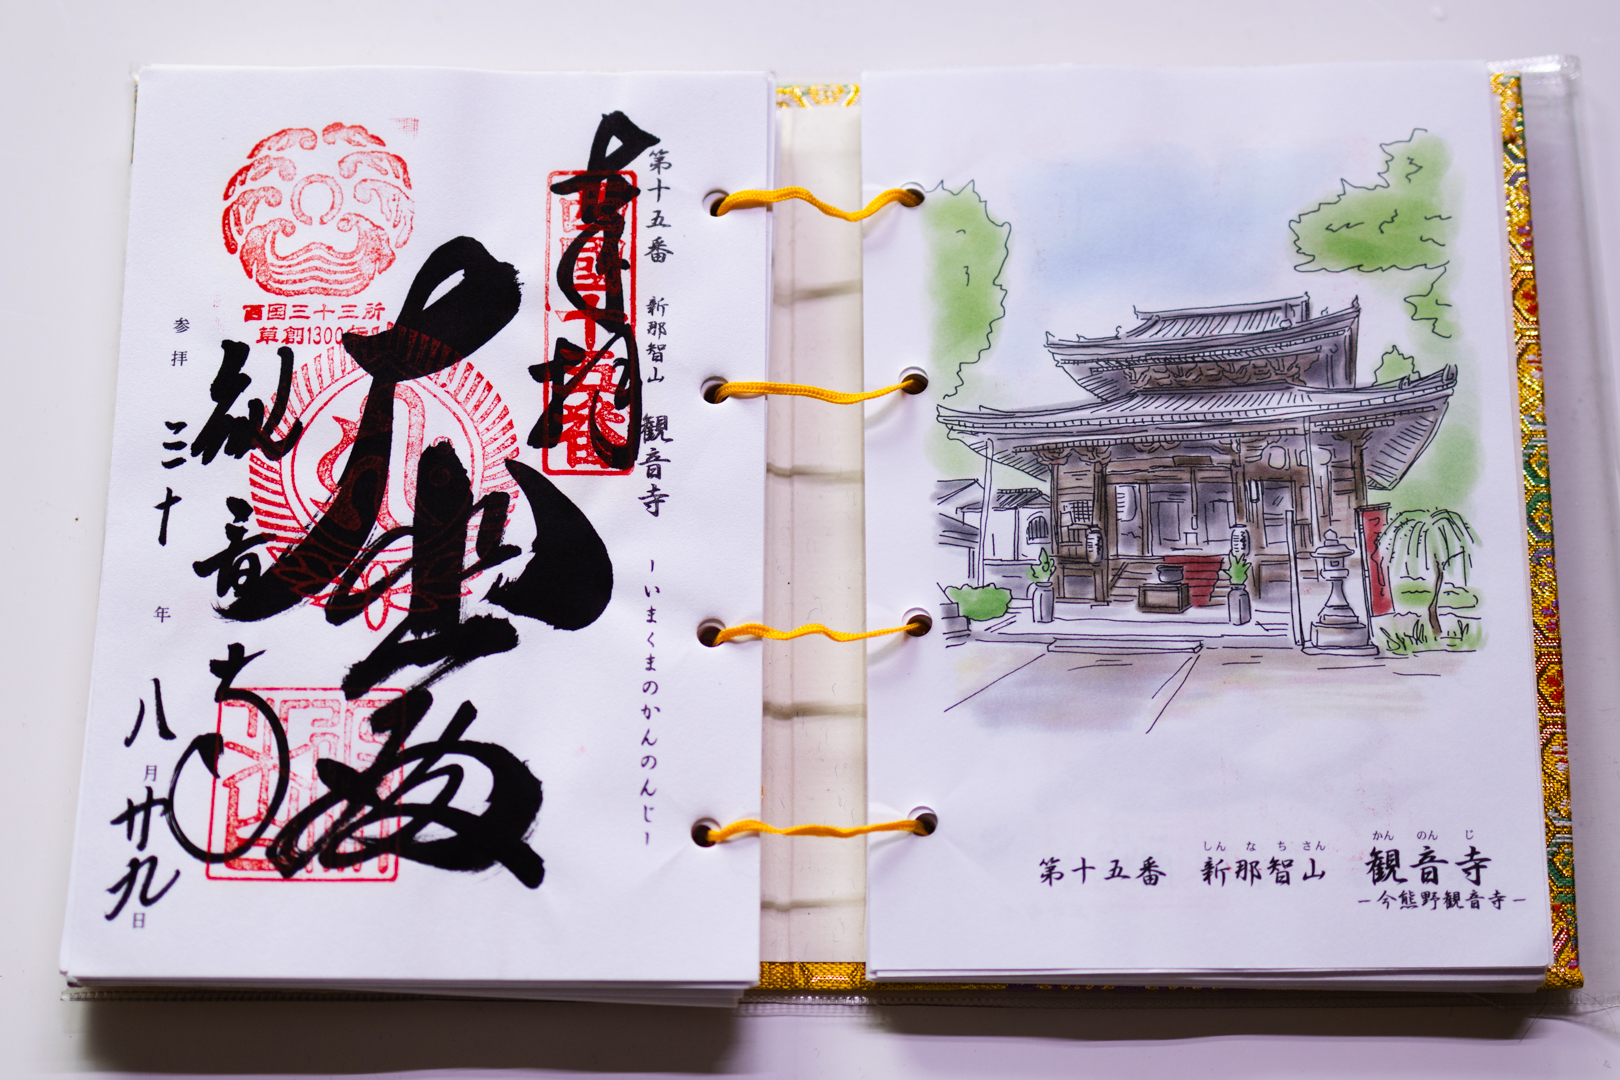 第十五番 新那智山 観音寺 －いまくまのかんのんじ－
奉拝
西國十五番
大悲殿
西国三十三所
草創1300年
観音寺
参拝 三十年八月廿九日
しんなちさん かんのんじ
第十五番 新那智山 観音寺
－今熊野観音寺－